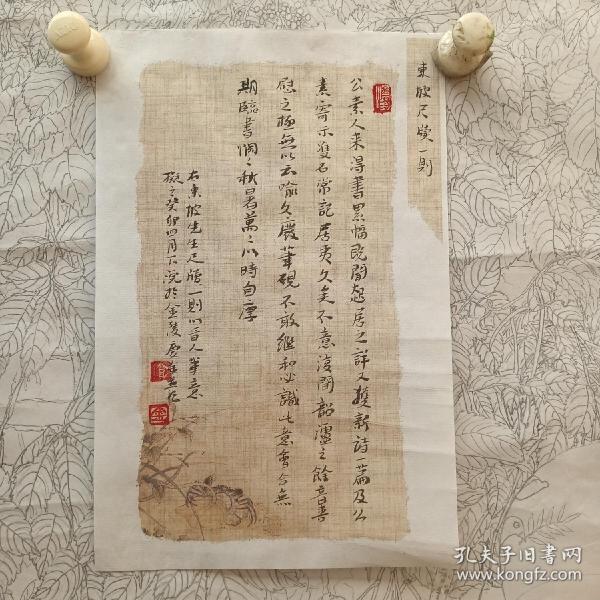 東坡尺牘一則
公素人来得書累幅既聞起居之詳又獲新詩一篇及公
素寄示雙石常記居夷久矣不意復聞韶濩之餘音喜
慰之極無以云喻久廢筆硯不敢繼和必識此意會合無
期臨書惘〻秋暑萬〻以時自厚
右東坡先生尺牘一則以晋人筆意
擬之癸卯四月下浣於金陵
孔夫子旧书网
www.kongfz.com